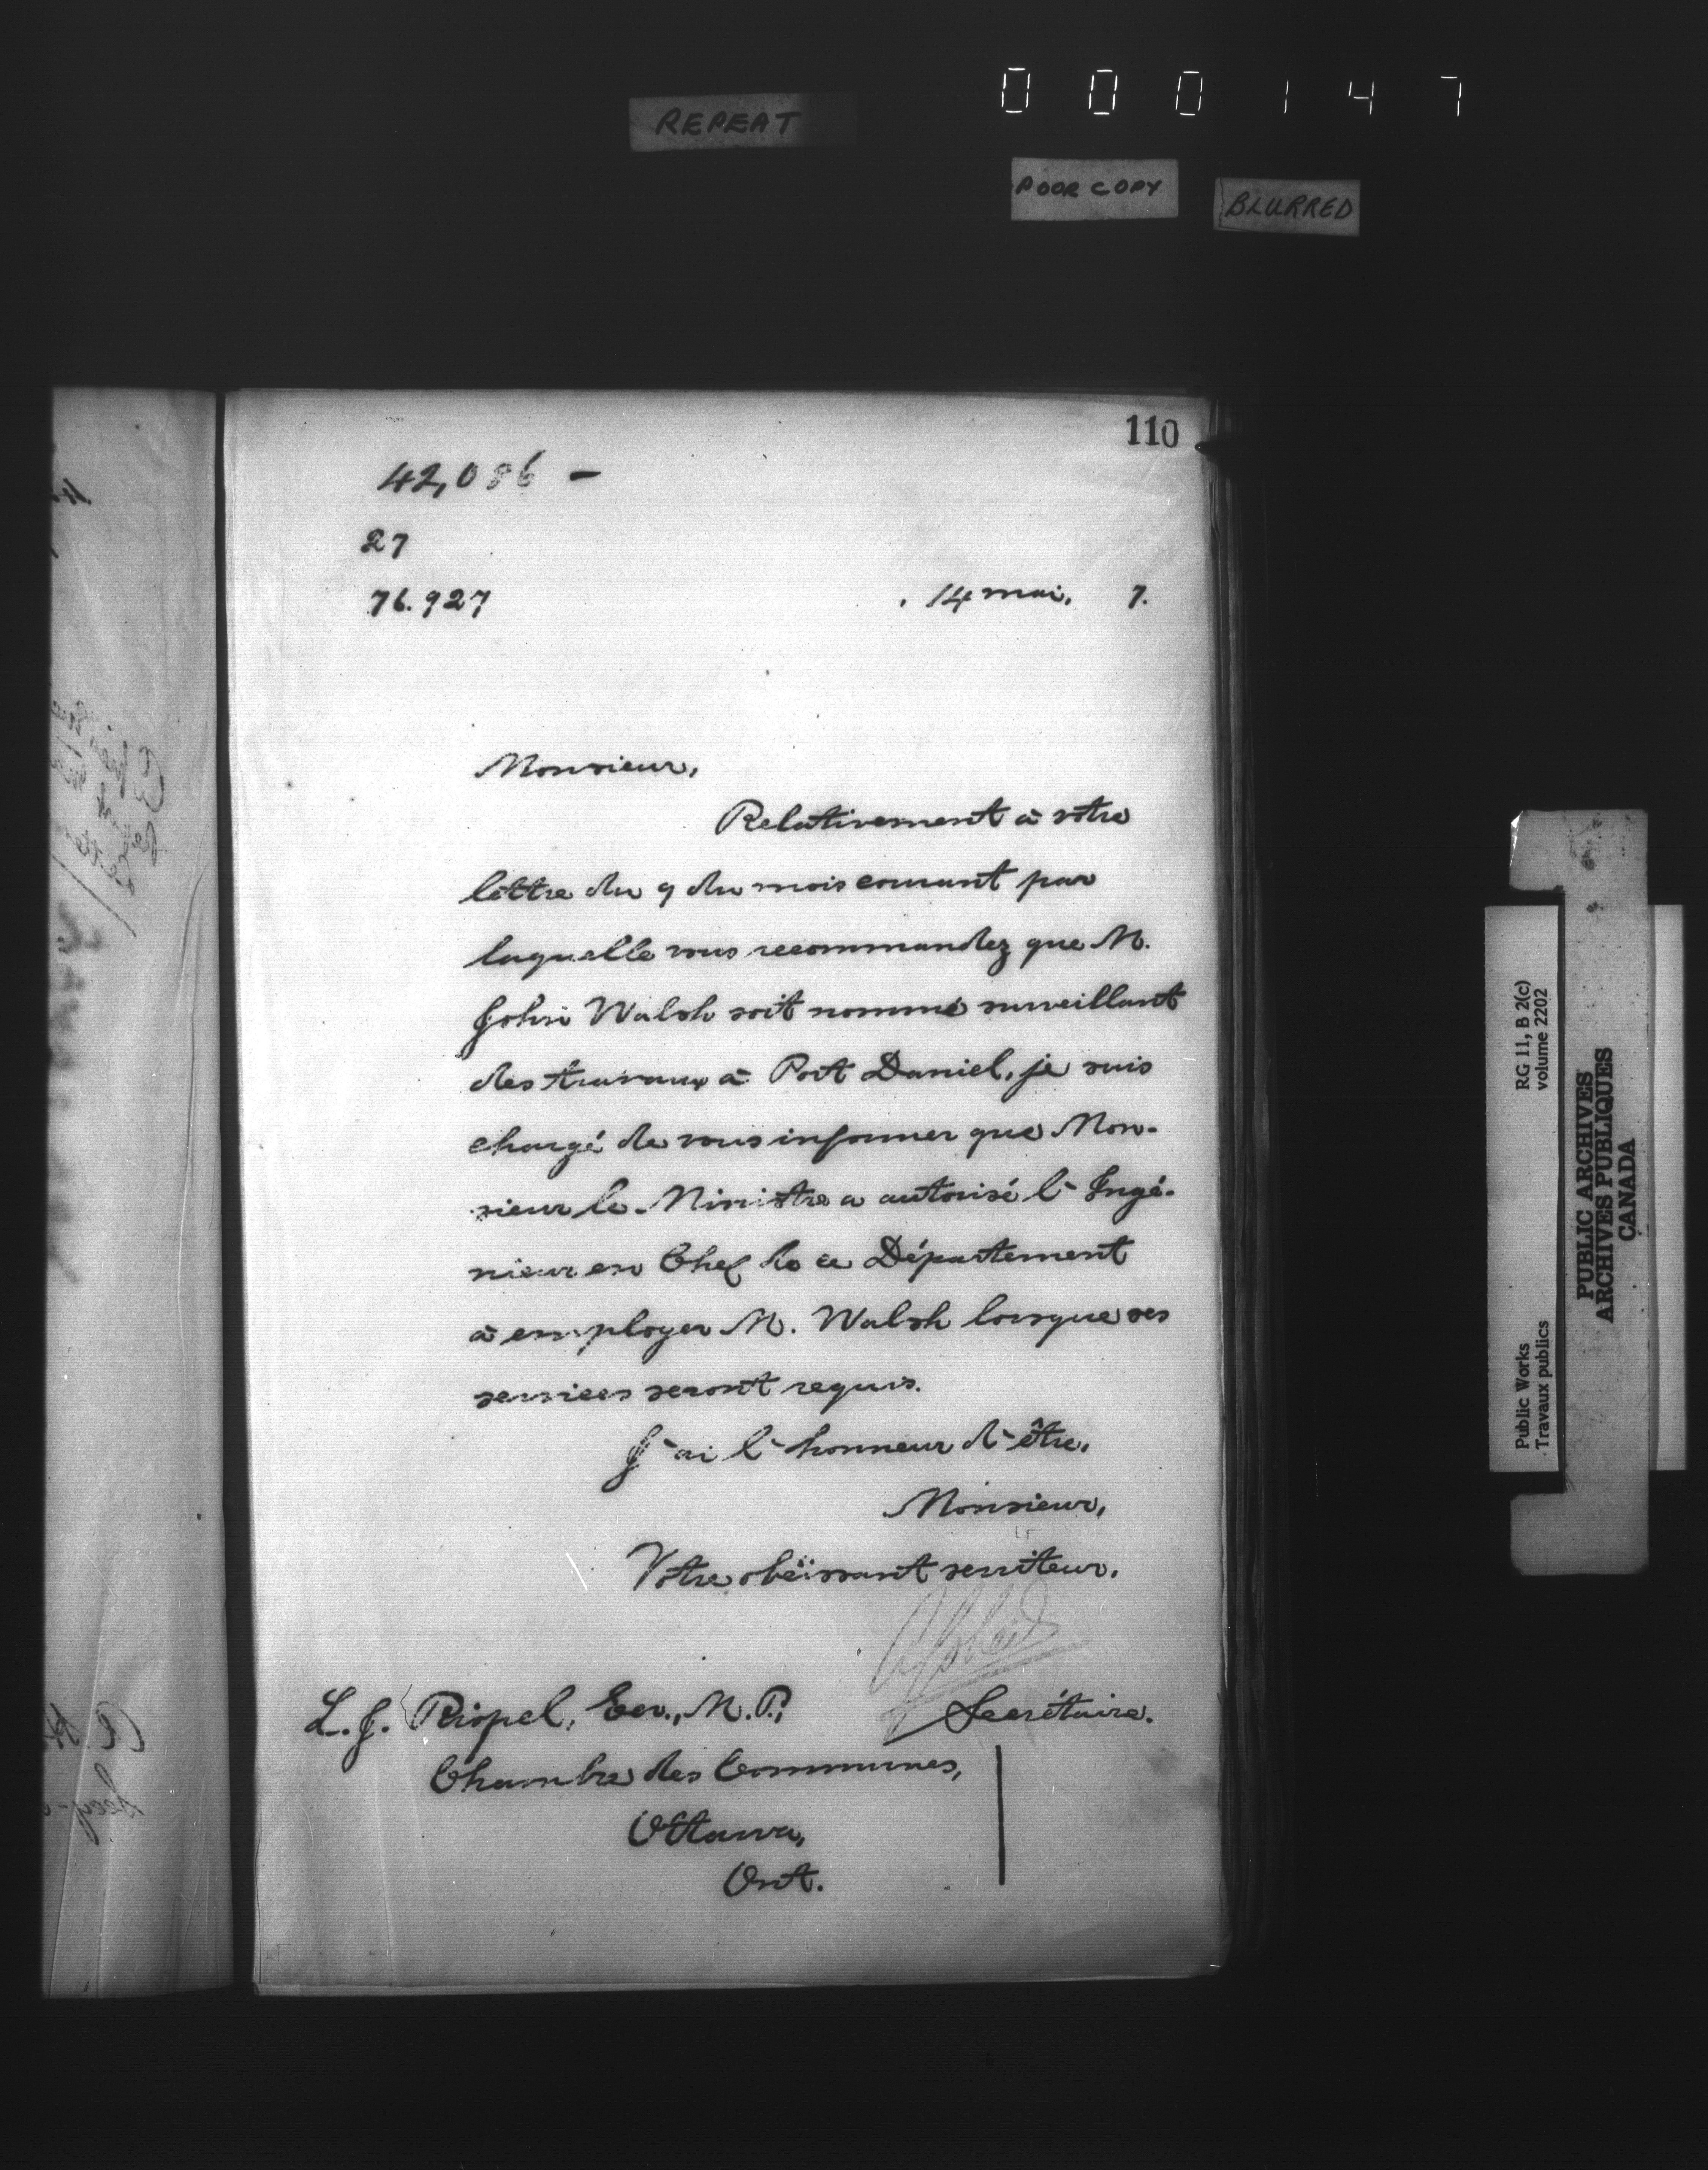 0 0 0 1 4 7
REPEAT
POOR COPY
BLURRED
110
42,086 —
27
76.927
14 mai, 7.
Monsieur,
Relativement à votre
lettre du 9 du mois courant par
laquelle vous recommandez que M.
John Walsh soit nommé surveillant
des travaux à Port Daniel, je suis
chargé de vous informer que Mon-
sieur le Ministre a autorisé l'Ingé-
nieur en Chef de ce Département
à employer M. Walsh lorsque ses
services seront requis.
J'ai l'honneur d'être,
Monsieur,
Votre obéissant serviteur,
Secrétaire.
L. J. Riopel, Ecr., M.P.,
Chambre des Communes,
Ottawa,
Ont.
Public Works
Travaux publics
RG 11, B 2(c)
volume 2202
PUBLIC ARCHIVES
ARCHIVES PUBLIQUES
CANADA